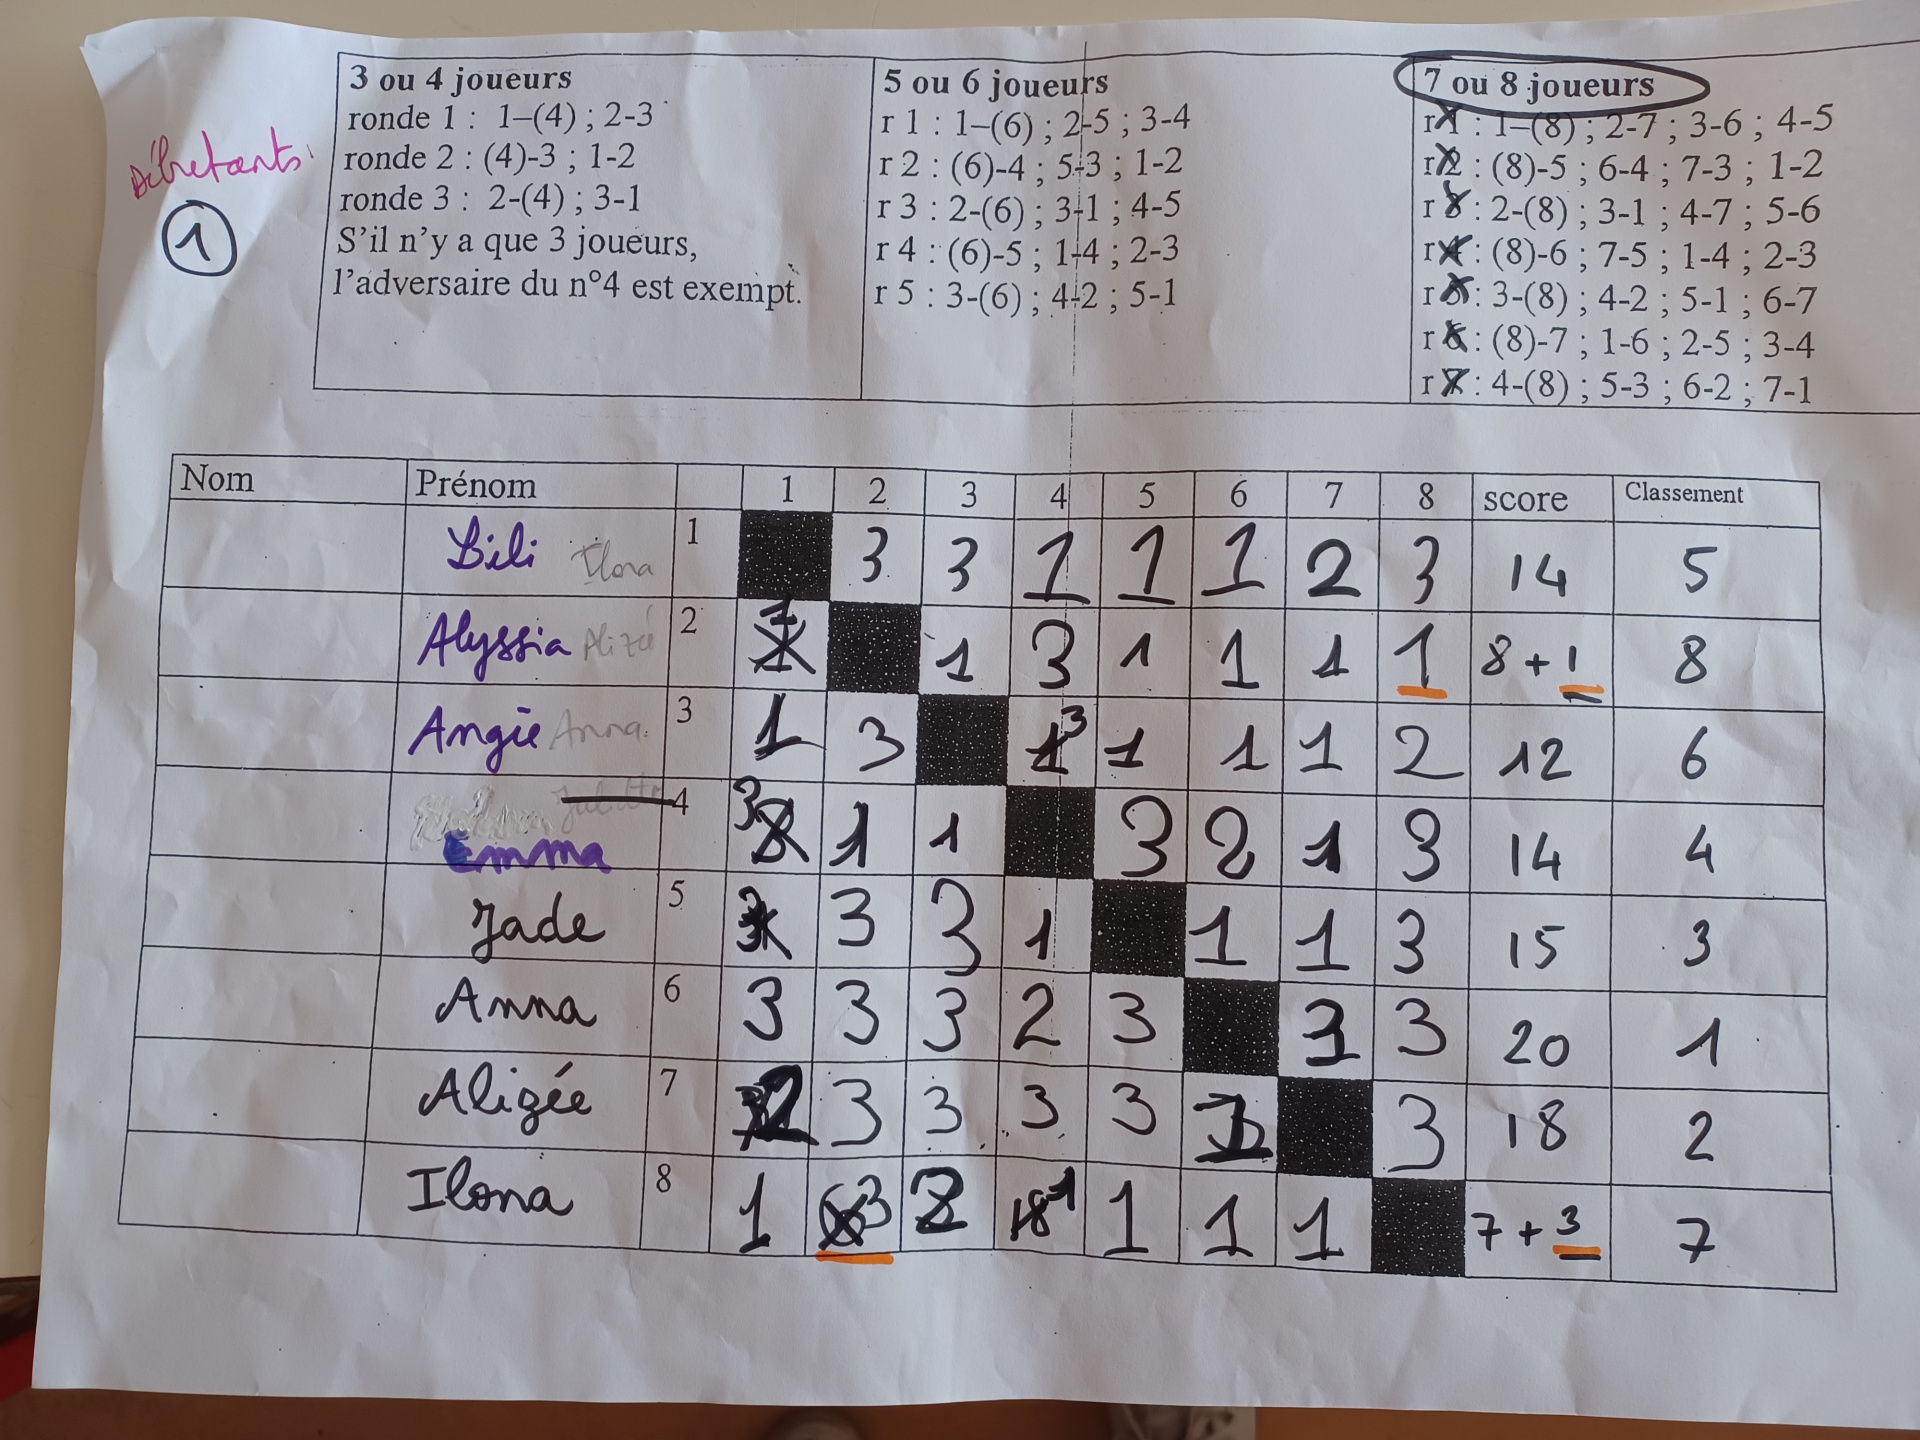 3 ou 4 joueurs
ronde 1 : 1–(4) ; 2-3
ronde 2 : (4)-3 ; 1-2
ronde 3 : 2-(4) ; 3-1
S'il n'y a que 3 joueurs,
l'adversaire du n°4 est exempt.
5 ou 6 joueurs
r 1 : 1–(6) ; 2-5 ; 3-4
r 2 : (6)-4 ; 5-3 ; 1-2
r 3 : 2-(6) ; 3-1 ; 4-5
r 4 : (6)-5 ; 1-4 ; 2-3
r 5 : 3-(6) ; 4-2 ; 5-1
7 ou 8 joueurs
r 1 : 1–(8) ; 2-7 ; 3-6 ; 4-5
r 2 : (8)-5 ; 6-4 ; 7-3 ; 1-2
r 3 : 2-(8) ; 3-1 ; 4-7 ; 5-6
r 4 : (8)-6 ; 7-5 ; 1-4 ; 2-3
r 5 : 3-(8) ; 4-2 ; 5-1 ; 6-7
r 6 : (8)-7 ; 1-6 ; 2-5 ; 3-4
r 7 : 4-(8) ; 5-3 ; 6-2 ; 7-1
Débutants
1
Nom Prénom 1 2 3 4 5 6 7 8 score Classement
Lili Ilona 1 3 3 1 1 1 2 3 14 5
Alyssia Alizé 2 1 1 3 1 1 1 1 8 + 1 8
Angie Anna 3 1 3 3 1 1 1 2 12 6
Emma 4 3 1 1 3 2 1 3 14 4
Jade 5 3 3 3 1 1 1 3 15 3
Anna 6 3 3 3 2 3 3 3 20 1
Alizée 7 2 3 3 3 3 1 3 18 2
Ilona 8 1 3 2 1 1 1 1 7 + 3 7